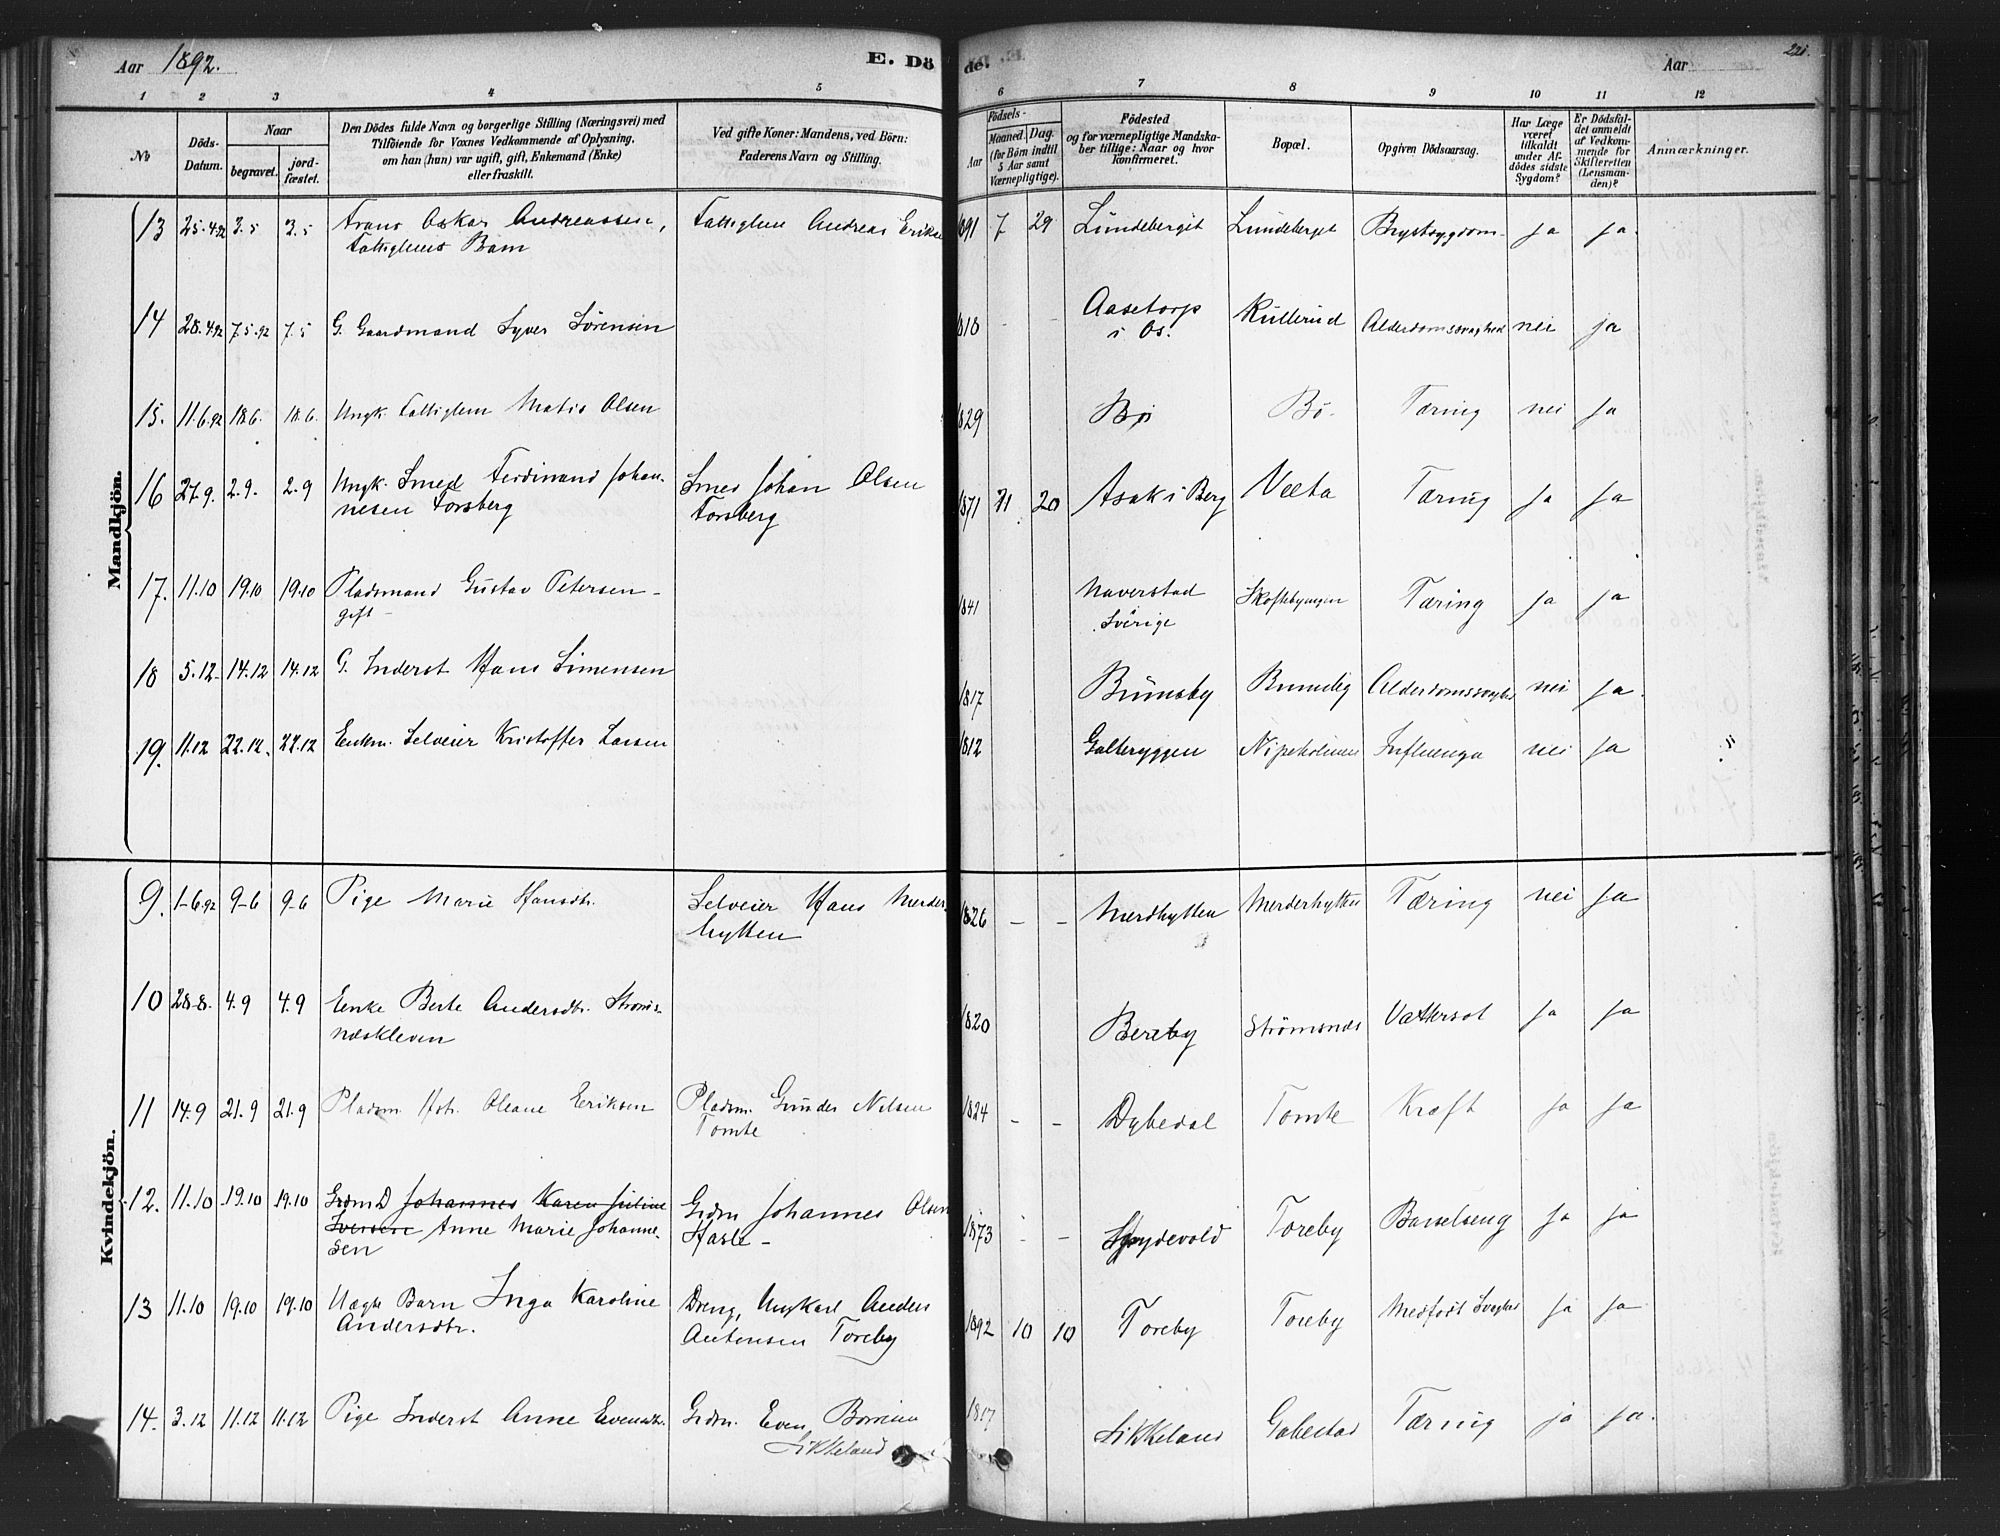 Aar 1892.
E. Dö
de.
Aar
221.
1 2 3 4 5 6 7 8 9 10 11 12
No
Döds-Datum.
Naar
begravet.
jord-fæstet.
Den Dödes fulde Navn og borgerlige Stilling (Næringsvei) med
Tilföiende for Voxnes Vedkommende af Oplysning,
om han (hun) var ugift, gift, Enkemand (Enke)
eller fraskilt.
Ved gifte Koner: Mandens, ved Börn:
Faderens Navn og Stilling.
Födsels-
Aar
Maaned. Dag.
(for Börn indtil
5 Aar samt
Værnepligtige).
Födested
og for værnepligtige Mandska-
ber tillige: Naar og hvor
Konfirmeret.
Bopæl.
Opgiven Dödsaarsag.
Har Læge
været
tilkaldt
under Af-
dödes sidste
Sygdom?
Er Dödsfal-
det anmeldt
af Vedkom-
mende for
Skifteretten
(Lensman-
den)?
Anmærkninger.
Mandkjön.
13 25.4.92 3.5 3.5 Frans Oskar Andreassen, Fattiglem Andreas Eriksen 1891 7 29 Lundeberget Lundeberget Brystsygdom ja ja
Fattiglems Barn
14 28.4.92 7.5.92 7.5 G. Gaardmand Syver Sörensen 1818 - - Aasetorp Kullerud Alderdomssvaghed nei ja
i Os.
15. 11.6.92 18.6. 18.6. Ungk. Fattiglem Matis Olsen 1829 Bö Bö Tæring nei ja
16 27.9. 2.9. 2.9 Ungk. Smed Ferdinand Johan- Smed Johan Olsen 1871 11 20 Asak i Berg Veeta Tæring ja ja
nesen Forsberg Forsberg
17. 11.10 19.10 19.10 Pladsmand Gustav Petersen - 1841 Naverstad Skoftebyengen Tæring ja ja
gift - Sverige
18 5.12 14.12 14.12 G. Inderst Hans Simensen 1817 Brunsby Alderdomssvaghed nei ja
19. 11.12 22.12. 22.12 Enkm. Selveier Kristoffer Larsen 1812 Galteryggen Nipeholmen Influenza nei ja
Kvindekjön.
9. 1-6.92 9-6 9-6 Pige Marie Hansdtr. Selveier Hans Merder- 1826 - - Merdhytten Merderhytten Tæring nei ja
hytten
10 28.8. 4.9 4.9 Enke Berte Andersdtr. Ströms- 1820 Bereby Strömsnes Vattersot ja ja
næskleven
11 14.9 21.9 21.9 Pladsm. Oleane Eriksen Pladsm. Gunder Nilsen 1824 - - Dybedal Tomte Kræft ja ja
Tomte
12. 11.10 19.10 19.10 GrdmD Johannes Karen Juline Grdm Johannes Olsen 1873 - - Spydevold Toreby Barselseng ja ja
Iversen Anne Marie Johanne- Hasle -
sen
13 11.10 19.10 19.10 Uægte Barn Inga Karoline Dreng, Ungkarl Anders 1892 10 10 Toreby Toreby Medfödt Svaghed ja ja
Andersdtr. Antonsen Toreby
14. 3.12 11.12 11.12 Pige Inderst Anne Evensdtr. Grdm. Even 1817 Likkeland Gabestad Tæring ja ja.
Likkeland